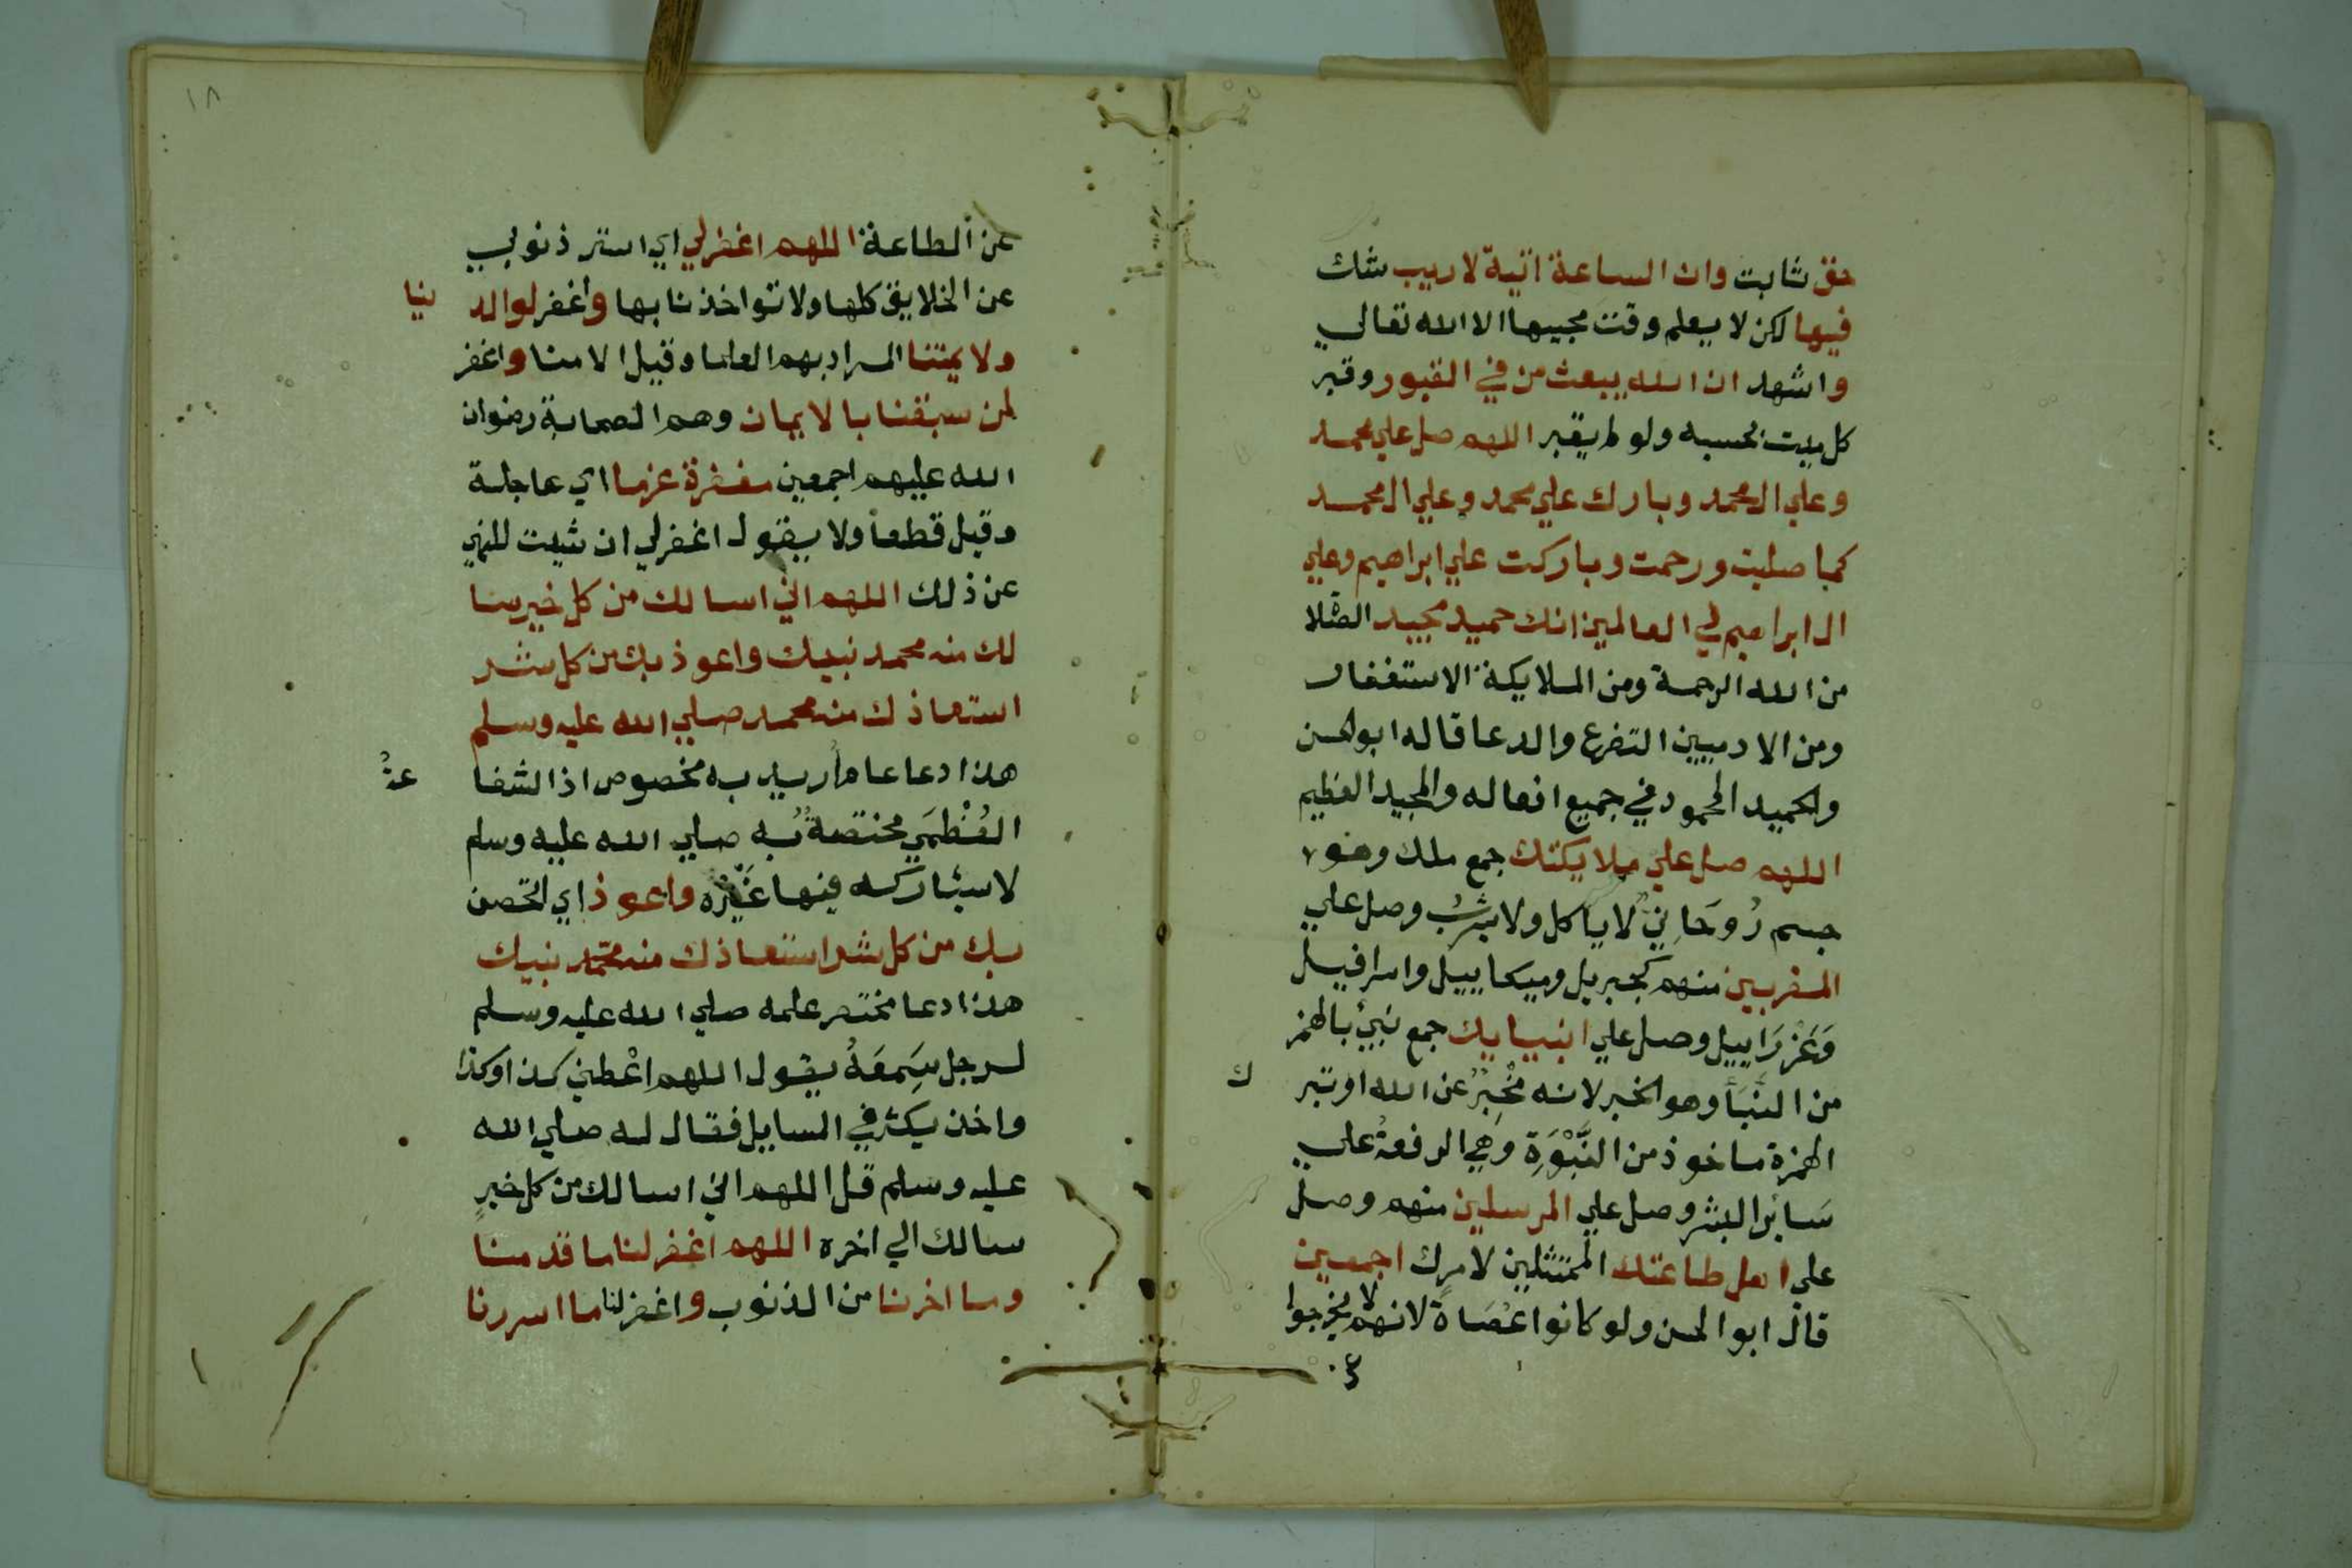 حق ثابت وان الساعة اتية لا ريب شك
فيها لكن لا يعلم وقت مجيها الا الله تعالي
واشهد ان الله يبعث من في القبور وقبر
كل ميت بحسبه ولو لم يقبر اللهم صل علي محمد
وعلي ال محمد وبارك علي محمد وعلي ال محمد
كما صليت ورحمت وباركت علي ابراهيم وعلي
ال ابراهيم في العالمين انك حميد مجيد الصلاة
من الله الرحمة ومن الملايكة الاستغفار
ومن الادميين التضرع والدعا قاله ابو الحسن
والحميد المحمود في جميع افعاله والمجيد العظيم
اللهم صل علي ملايكتك جمع ملك وهو
جسم رُوحَانيٌ لا ياكل ولا يشربُ وصل علي
المقربين منهم كجبريل وميكاييل واسرافيل
وَعَزْرَاييل وصل علي انبيايك جمع نبئ بالهمز
من النَّبَأ وهو الخبر لانه مُخْبِرٌ عن الله او بترك
الهمزة ماخوذ من النَّبْوَةِ وَهِي الرفعةُ علي
سَائر البشر وصل علي المرسلين منهم وصل
علي اهل طاعتك الممتثلين لامرك اجمعين
قال ابو الحسن ولو كانوا عُصَاةً لانهم لا يخرجوا
١٨
عن الطاعة اللهم اغفر لي اي استر ذنوبي
عن الخلايق كلها ولا تواخذنا بها واغفر لوالدينا
ولايمتنا المراد بهم العلما وقيل الامنا واغفر
لمن سبقنا بالايمان وهم الصحابة رضوان
الله عليهم اجمعين مغفرة عزما اي عاجلة
وقيل قطعاً ولا يقول اغفر لي ان شيت للنهي
عن ذلك اللهم اني اسالك من كل خير سا
لك منه محمد نبيك واعوذ بك من كل شر
استعاذك منه محمد صلي الله عليه وسلم
هذا دعا عام أريد به مخصوص اذ الشفا عةُ
العُظْمَي مختصةٌ به صلي الله عليه وسلم
لا يشاركه فيها غَيْرُه واعوذ اي اتحصن
بك من كل شر استعاذك منه محمد نبيك
هذا دعا مختصر علمه صلي الله عليه وسلم
لرجل سَمِعَهُ يقول اللهم اعْطني كذا وكذا
واخذ يكثر في المسايل فقال له صلي الله
عليه وسلم قل اللهم اني اسالك من كل خيرٍ
سالك الي اخره اللهم اغفر لنا ما قدمنا
وما اخرنا من الذنوب واغفر لنا ما اسررنا